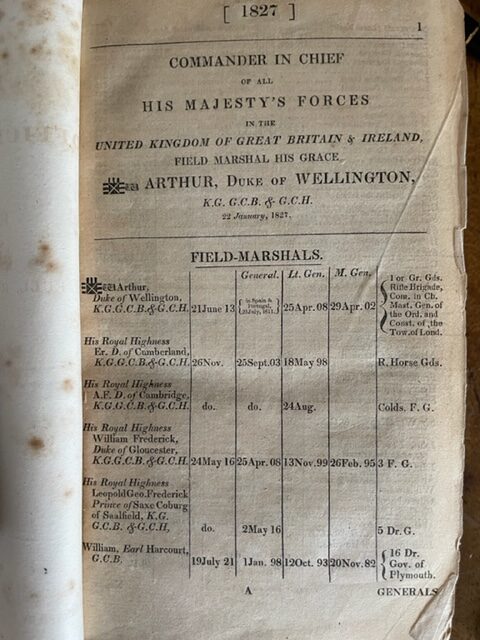 [ 1827 ]
1
COMMANDER IN CHIEF
OF ALL
HIS MAJESTY'S FORCES
IN THE
UNITED KINGDOM OF GREAT BRITAIN & IRELAND,
FIELD MARSHAL HIS GRACE
W ARTHUR, DUKE OF WELLINGTON,
K.G. G.C.B. & G.C.H.
22 January, 1827.
FIELD-MARSHALS.
General. Lt. Gen. M. Gen.
W Arthur, 1 or Gr. Gds.
Duke of Wellington, in Spain & Rifle Brigade,
K.G.G.C.B. & G.C.H. 21June 13 Portugal, 25Apr. 08 29Apr. 02 Com. in Ch.
31July, 1811. Mast. Gen. of
the Ord. and
Const. of the
Tow. of Lond.
His Royal Highness
Er. D. of Cumberland,
K.G.G.C.B. & G.C.H. 26Nov. 25Sept.03 18May 98 R. Horse Gds.
His Royal Highness
A.F. D. of Cambridge,
K.G.G.C.B. & G.C.H. do. do. 24Aug. Colds. F. G.
His Royal Highness
William Frederick,
Duke of Gloucester,
K.G.G.C.B. & G.C.H. 24May 16 25Apr. 08 13Nov.99 26Feb. 95 3 F. G.
His Royal Highness
Leopold Geo. Frederick
Prince of Saxe Coburg
of Saalfield, K.G.
G.C.B. & G.C.H. do. 2May 16 5 Dr. G.
William, Earl Harcourt, 16 Dr.
G.C.B. 19July 21 1Jan. 98 12Oct. 93 20Nov. 82 Gov. of
Plymouth.
A GENERALS